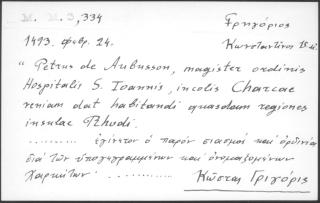 M. M. 3,334 Γρηγόριος
1493. φεβρ. 24. Κωνσταντῖνος
" Petrus de Aubusson, magister ordinis
Hospitalis S. Ioannis, incolis Charcae
veniam dat habitandi quasdam regiones
insulae Rhodi.
.......... ἐγίνετον ὁ παρὸν σιασμὸς καὶ ὀρδινία
διὰ τῶν ὑπογεγραμμένων καὶ ὀνομαζομένων
Χαρκιτῶν · ...........
Κώστας Γριγόρις